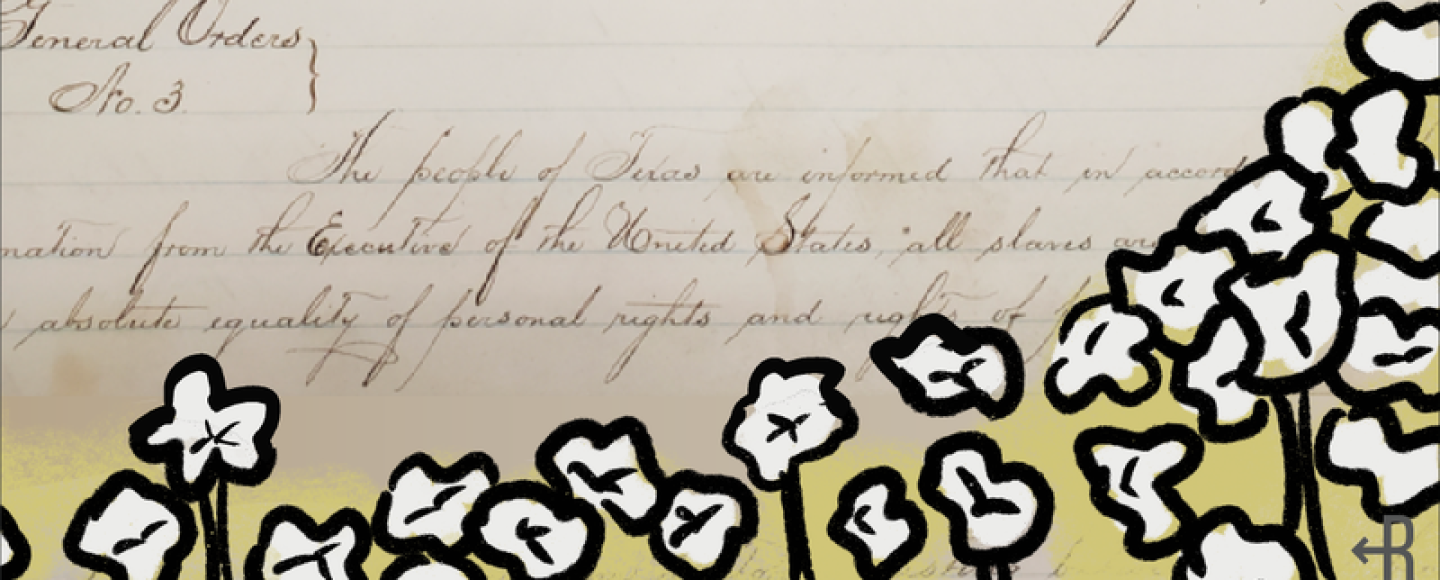 General Orders
No. 3.
The people of Texas are informed that in accord
mation from the Executive of the United States, "all slaves are
absolute equality of personal rights and rights of